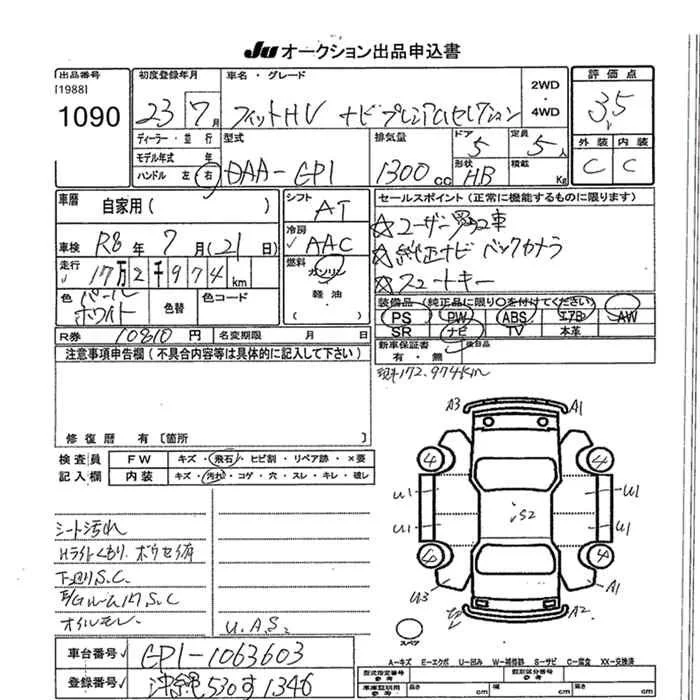 Ju オークション出品申込書
出品番号
[1988]
1090
初度登録年月
23 7月
車名・グレード
フィットHV ナビプレミアムセレクション
2WD
・
4WD
評価点
3.5
外装 内装
C C
ディーラー・並行
モデル年式 年
ハンドル 左 右
型式
DAA-GP1
排気量
1300cc
ドア
5
定員
5人
形状
HB
積載
Kg
車歴
自家用( )
車検 R8年 7月(21日)
走行 17万2千974km
色 パールホワイト
色替
色コード
シフト
AT
冷房
AAC
燃料
ガソリン
軽油
( )
セールスポイント(正常に機能するものに限ります)
☆ユーザー買取車
☆純正ナビ バックカメラ
☆スマートキー
装備品(純正品に限り○を付けてください)
PS PW ABS エアB AW
SR ナビ TV 本革
R券 10810円
名変期限 月 日
新車保証書
有・無
後日品
注意事項申告欄(不具合内容等は具体的に記入して下さい)
現状172,974km
修復歴 有〔箇所 〕
検査員
記入欄
FW キズ・飛石・ヒビ割・リペア跡・×要
内装 キズ・汚れ・コゲ・穴・スレ・キレ・破レ
シート汚れ
Hライトくもり、ボウセイ有
下廻りS.C.
E/Gルーム内S.C
オイルモレ
U.A.S.
A3 A1
4 4
U1 U1
U1 U1
S2
4 4
U3 A1
A2
スペア
A-キズ E-エクボ U-凹み W-補修跡 S-サビ C-腐食 XX-交換済
車台番号 GP1-1063603
登録番号 沖縄530す1346
型式指定番号
参考
類別区分番号
参考
車庫証明用
参考
長さ cm
幅 cm
高さ cm